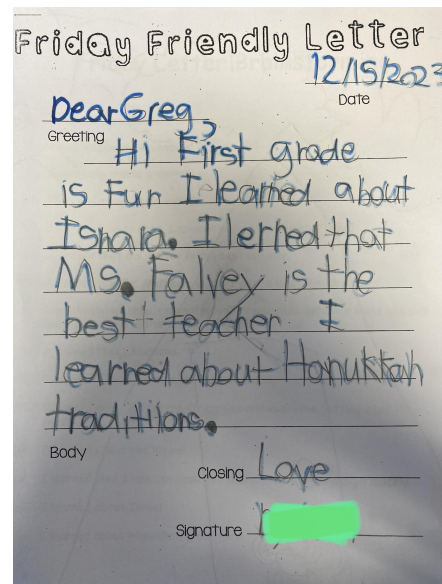 Friday Friendly Letter
12/15/2023
Date
Dear Greg,
Greeting
Hi First grade
is Fun I learned about
Ishara. I lerned that
Ms. Falvey is the
best teacher I
learned about Hanukkah
traditions.
Body
Closing Love
Signature